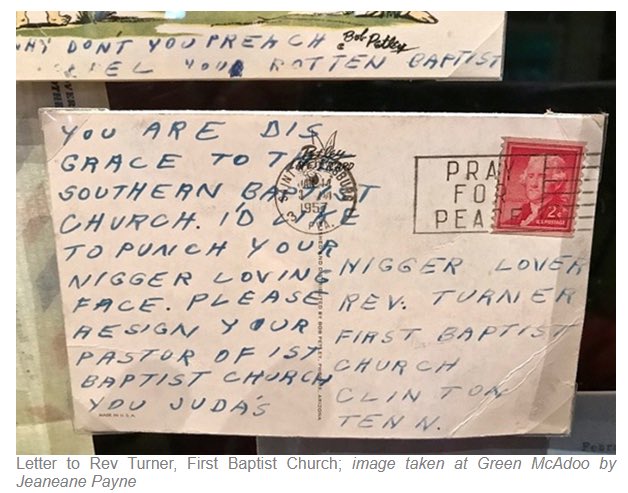 WHY DON'T YOU PREACH
YOUR ROTTEN BAPTIST
Bob Petley
YOU ARE DIS
GRACE TO THE
SOUTHERN BAPTIST
CHURCH. I'D LIKE
TO PUNCH YOUR
NIGGER LOVING
FACE. PLEASE
RESIGN YOUR
PASTOR OF 1ST
BAPTIST CHURCH
YOU JUDA'S
MADE IN U.S.A.
1957
PRAY
FOR
PEACE
2¢
U.S. POSTAGE
NIGGER LOVER
REV. TURNER
FIRST BAPTIST
CHURCH
CLINTON
TENN.
Letter to Rev Turner, First Baptist Church; image taken at Green McAdoo by
Jeaneane Payne